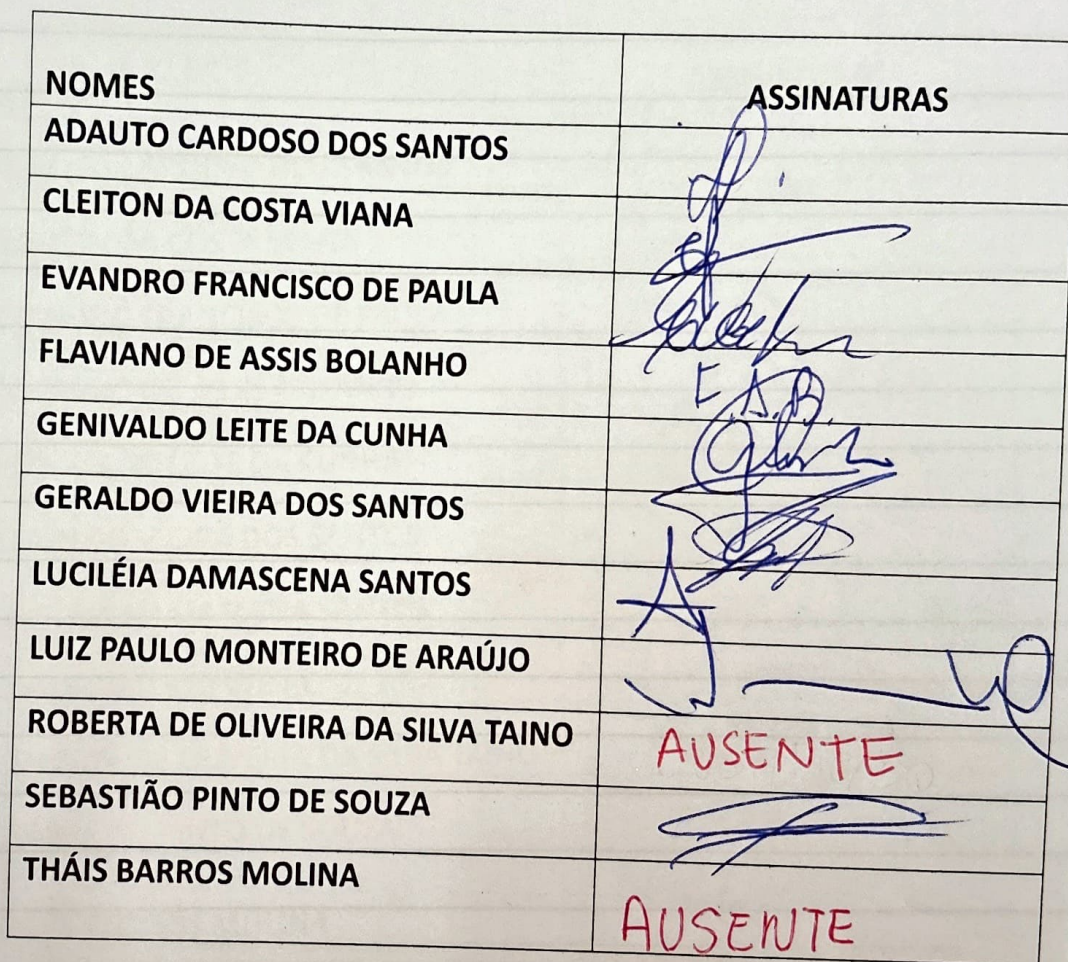 NOMES ASSINATURAS
ADAUTO CARDOSO DOS SANTOS
CLEITON DA COSTA VIANA
EVANDRO FRANCISCO DE PAULA
FLAVIANO DE ASSIS BOLANHO F.A.B.
GENIVALDO LEITE DA CUNHA
GERALDO VIEIRA DOS SANTOS
LUCILÉIA DAMASCENA SANTOS
LUIZ PAULO MONTEIRO DE ARAÚJO
ROBERTA DE OLIVEIRA DA SILVA TAINO AUSENTE
SEBASTIÃO PINTO DE SOUZA
THÁIS BARROS MOLINA AUSENTE